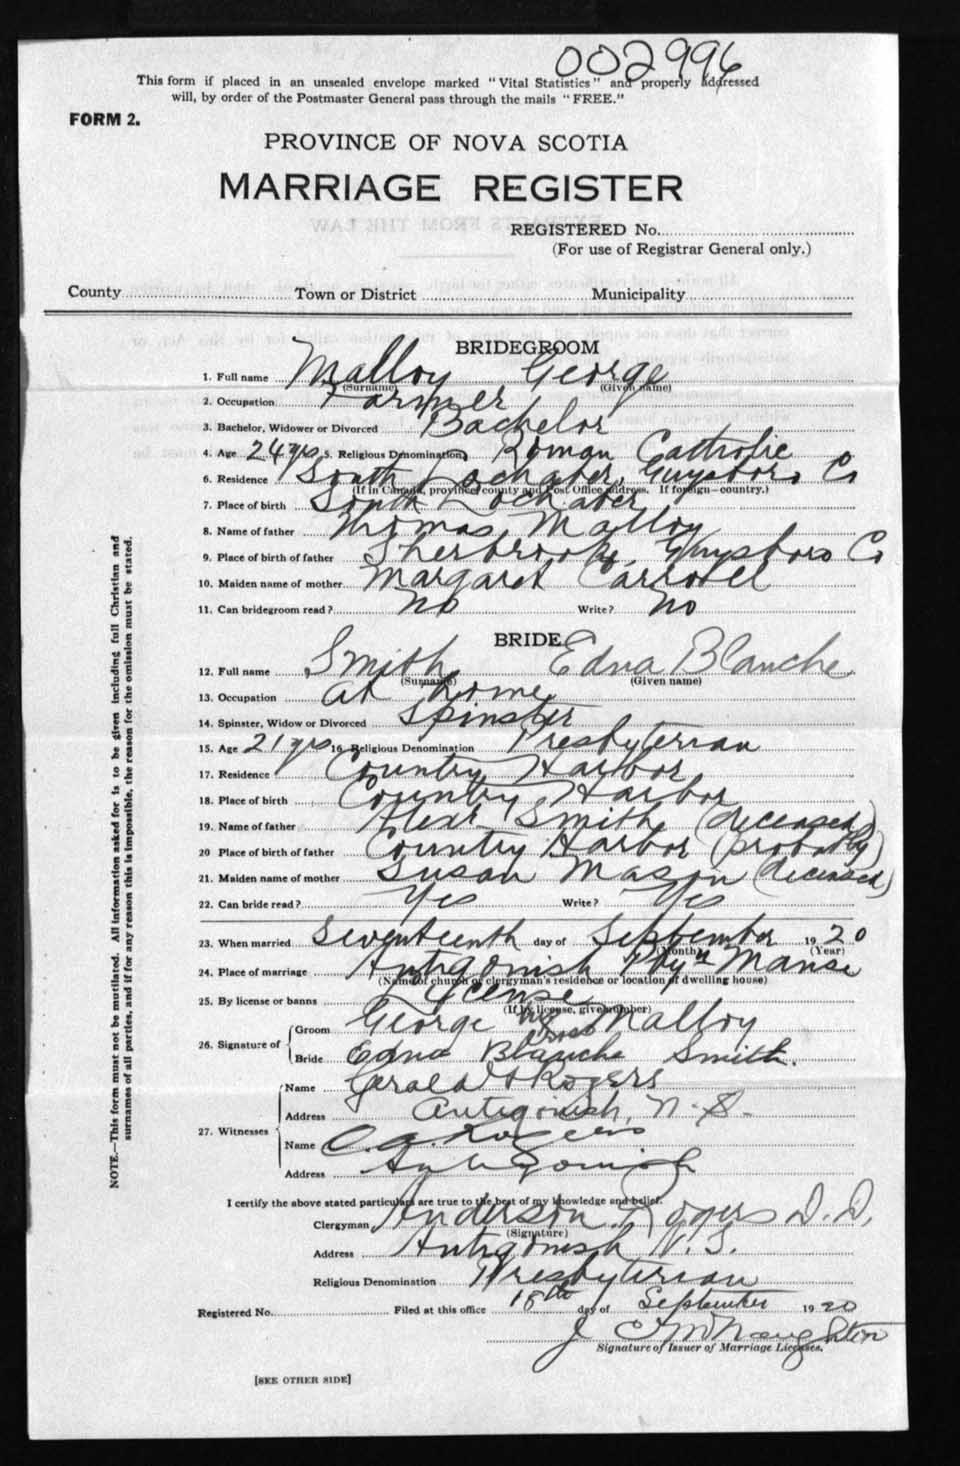 002996
This form if placed in an unsealed envelope marked "Vital Statistics" and properly addressed
will, by order of the Postmaster General pass through the mails "FREE."
FORM 2.
PROVINCE OF NOVA SCOTIA
MARRIAGE REGISTER
REGISTERED No.
(For use of Registrar General only.)
County Town or District Municipality
BRIDEGROOM
1. Full name Malloy George
(Surname) (Given name)
2. Occupation Farmer
3. Bachelor, Widower or Divorced Bachelor
4. Age 24 yrs 5. Religious Denomination Roman Catholic
6. Residence South Lochaber, Guysboro Co
(If in Canada, province, county and Post Office address. If foreign—country.)
7. Place of birth South Lochaber
8. Name of father Thomas Malloy
9. Place of birth of father Sherbrooke, Guysboro Co
10. Maiden name of mother Margaret Carroll
11. Can bridegroom read? No Write? No
BRIDE
12. Full name Smith Edna Blanche
(Surname) (Given name)
13. Occupation at home
14. Spinster, Widow or Divorced Spinster
15. Age 21 yrs 16. Religious Denomination Presbyterian
17. Residence Country Harbor
18. Place of birth Country Harbor
19. Name of father Alexr Smith (deceased)
20 Place of birth of father Country Harbor (probably)
21. Maiden name of mother Susan Mason (deceased)
22. Can bride read? Yes Write? Yes
23. When married Seventeenth day of September 1920
(Month) (Year)
24. Place of marriage Antigonish Pbyn Manse
(Name of church or clergyman's residence or location of dwelling house)
25. By license or banns Lycense
(If by license, give number)
26. Signature of
Groom George his cross Malloy
Bride Edna Blanche Smith.
27. Witnesses
Name Gerald Rogers
Address Antigonish, N.S.
Name C.A. Rogers
Address Antigonish
I certify the above stated particulars are true to the best of my knowledge and belief.
Clergyman Anderson Rogers D.D.
(Signature)
Address Antigonish N.S.
Religious Denomination Presbyterian
Registered No. Filed at this office 18th day of September 1920
J McNaughton
Signature of Issuer of Marriage Licenses.
[SEE OTHER SIDE]
NOTE.—This form must not be mutilated. All information asked for is to be given including full Christian and
surnames of all parties, and if for any reason this is impossible, the reason for the omission must be stated.